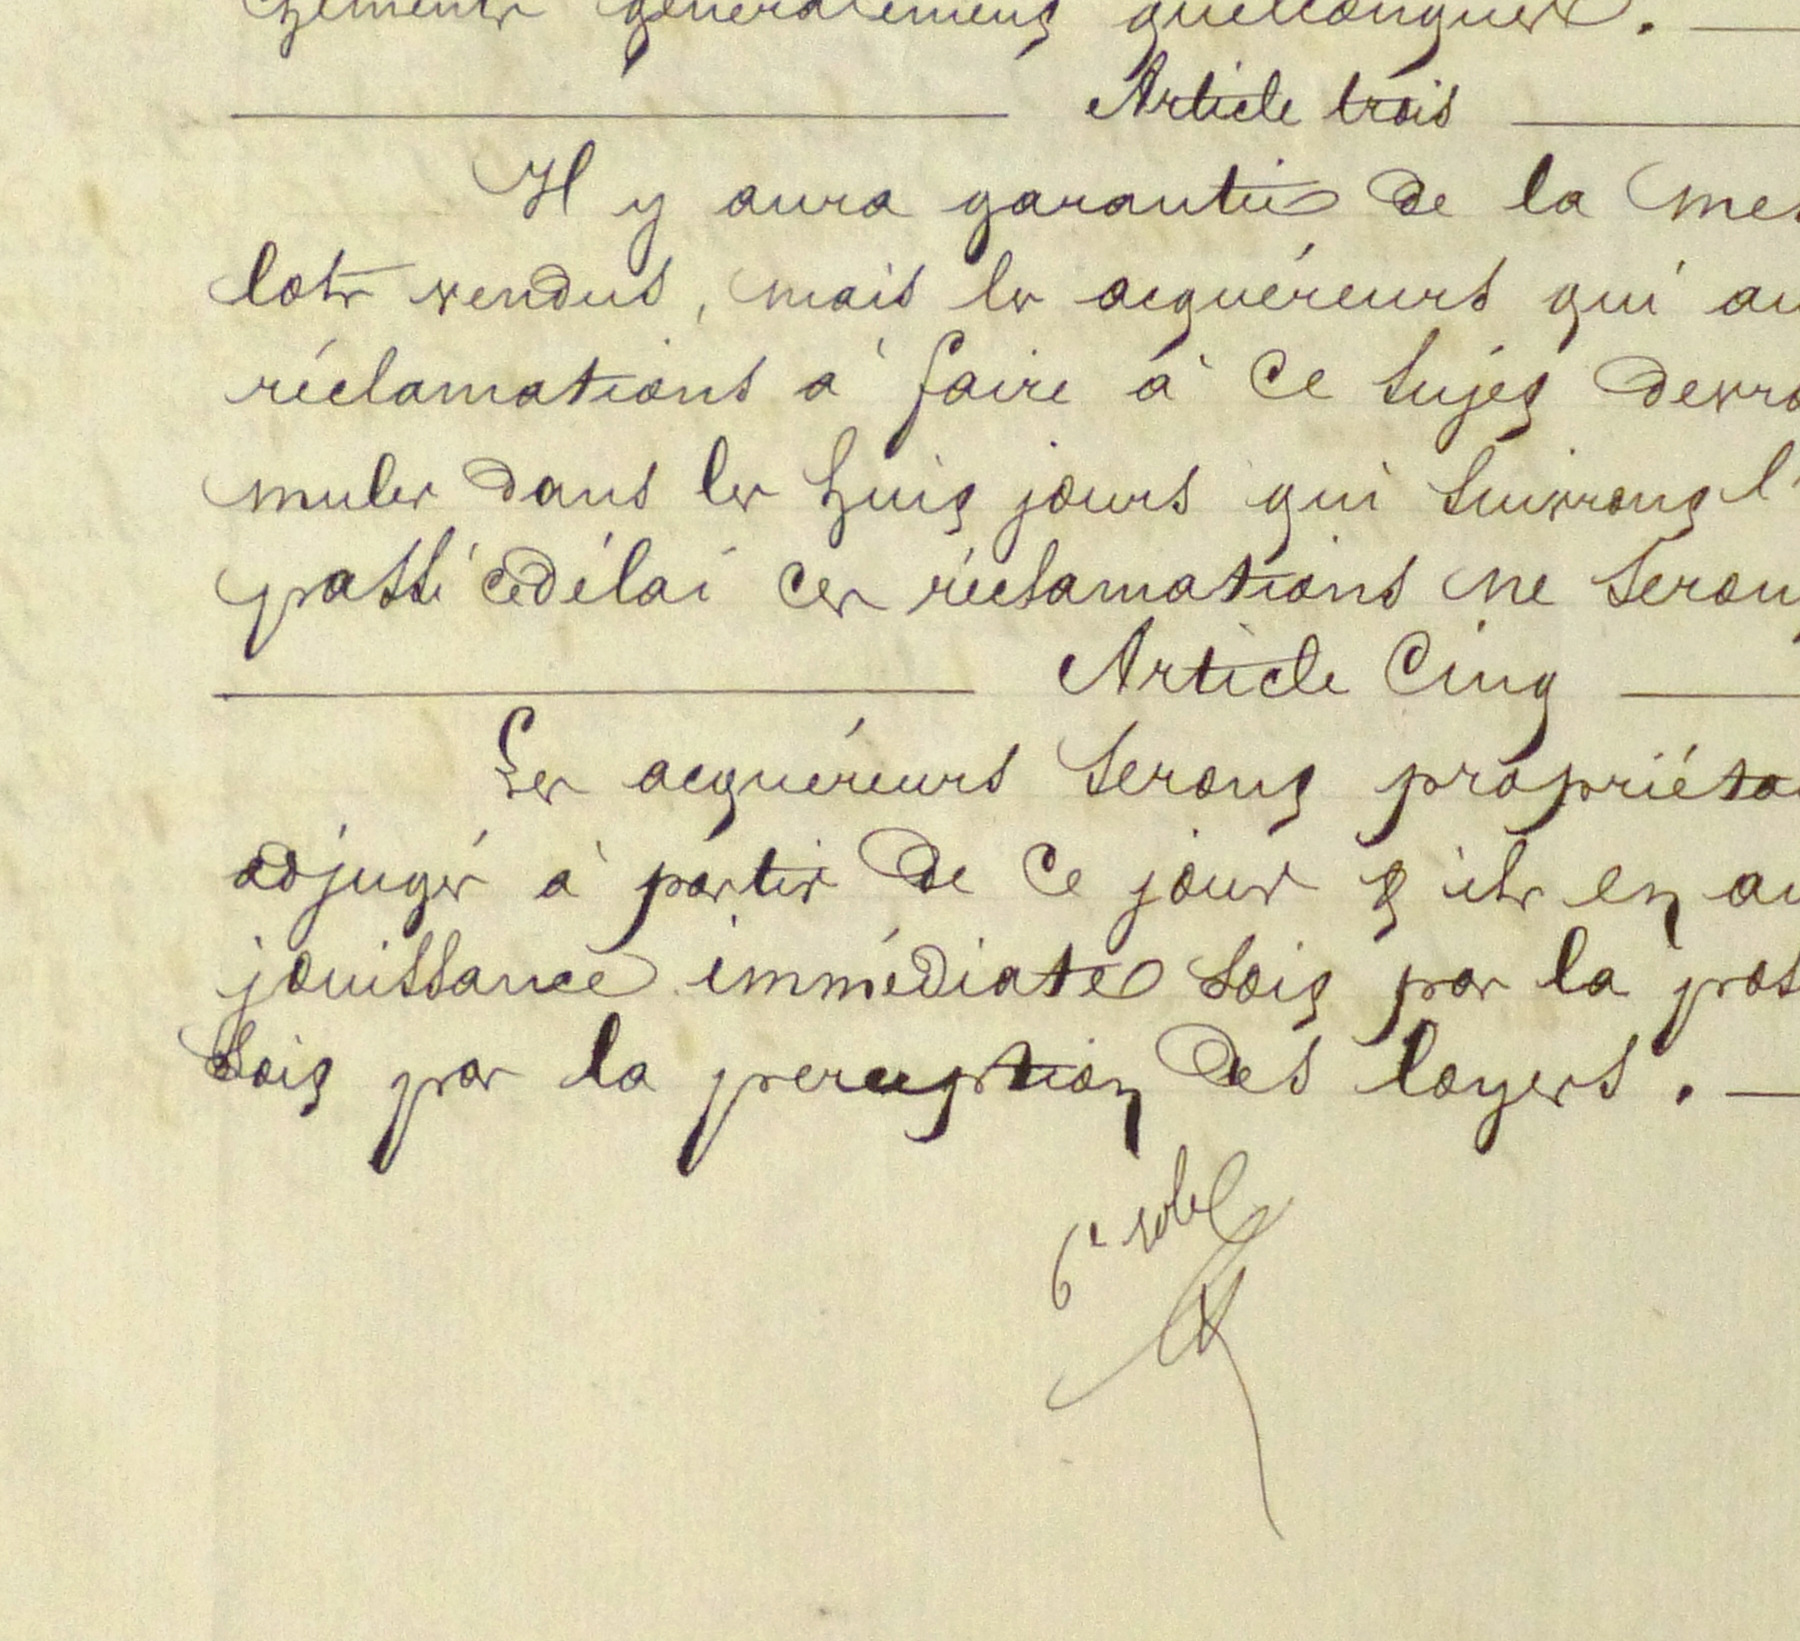 généralement quelconques. —
— Article trois —
Il y aura garantie de la mes
lots vendus, mais les acquéreurs qui au
réclamations à faire à ce sujet devro
muler dans les huit jours qui suivront l'
passé ce délai ces réclamations ne seront
— Article Cinq —
Les acquéreurs seront propriéta
adjugés à partir de ce jour et ils en au
jouissance immédiate soit par la pos
soit par la perception des loyers. —
6e rôle